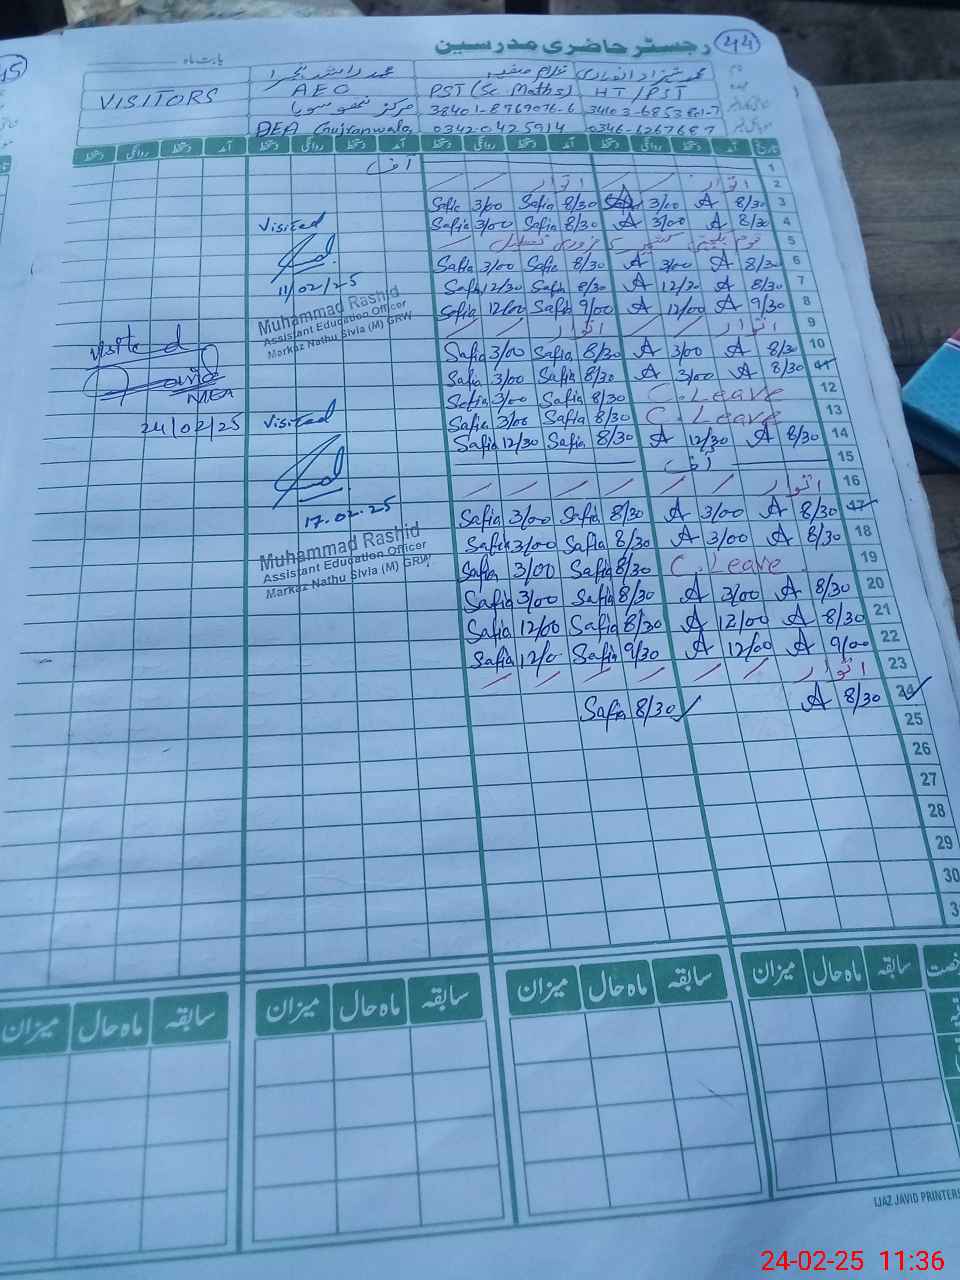 رجسٹر حاضری مدرسین 44
45
بابت ماہ
VISITORS
AEO PST (Sc. Maths) HT / PST
مرکز
DEA Gujranwala 0342-0425914 0346-6267687
دستخط روانگی دستخط آمد دستخط روانگی دستخط آمد دستخط روانگی دستخط آمد دستخط روانگی دستخط آمد تاریخ
1
اتوار اتوار 2
Safia 3/00 Safia 8/30 3/00 A 8/30 3
Safia 3/00 Safia 8/30 A 3/00 A 8/30 4
5
Safia 3/00 Safia 8/30 A 3/00 A 8/30 6
Safia 12/30 Safia 8/30 A 12/30 A 8/30 7
Safia 12/00 Safia 9/00 A 12/00 A 9/30 8
اتوار اتوار 9
Safia 3/00 Safia 8/30 A 3/00 A 8/30 10
Safia 3/00 Safia 8/30 A 3/00 A 8/30 11
Safia 3/00 Safia 8/30 C. Leave 12
Safia 3/00 Safia 8/30 C. Leave 13
Safia 12/30 Safia 8/30 A 12/30 A 8/30 14
15
اتوار 16
Safia 3/00 Safia 8/30 A 3/00 A 8/30 17
Safia 3/00 Safia 8/30 A 3/00 A 8/30 18
Safia 3/00 Safia 8/30 C. Leave 19
Safia 3/00 Safia 8/30 A 3/00 A 8/30 20
Safia 12/00 Safia 8/30 A 12/00 A 8/30 21
Safia 12/0 Safia 9/30 A 12/00 A 9/00 22
اتوار 23
Safia 8/30 A 8/30 24
25
26
27
28
29
30
3
Visited
11/02/25
Muhammad Rashid
Assistant Education Officer
Markaz Nathu Sivia (M) GRW
Visited
17.02.25
Muhammad Rashid
Assistant Education Officer
Markaz Nathu Sivia (M) GRW
Visited
MEA
24/02/25
میزان ماہ حال سابقہ میزان ماہ حال سابقہ میزان ماہ حال سابقہ میزان ماہ حال سابقہ
IJAZ JAVID PRINTERS
24-02-25 11:36